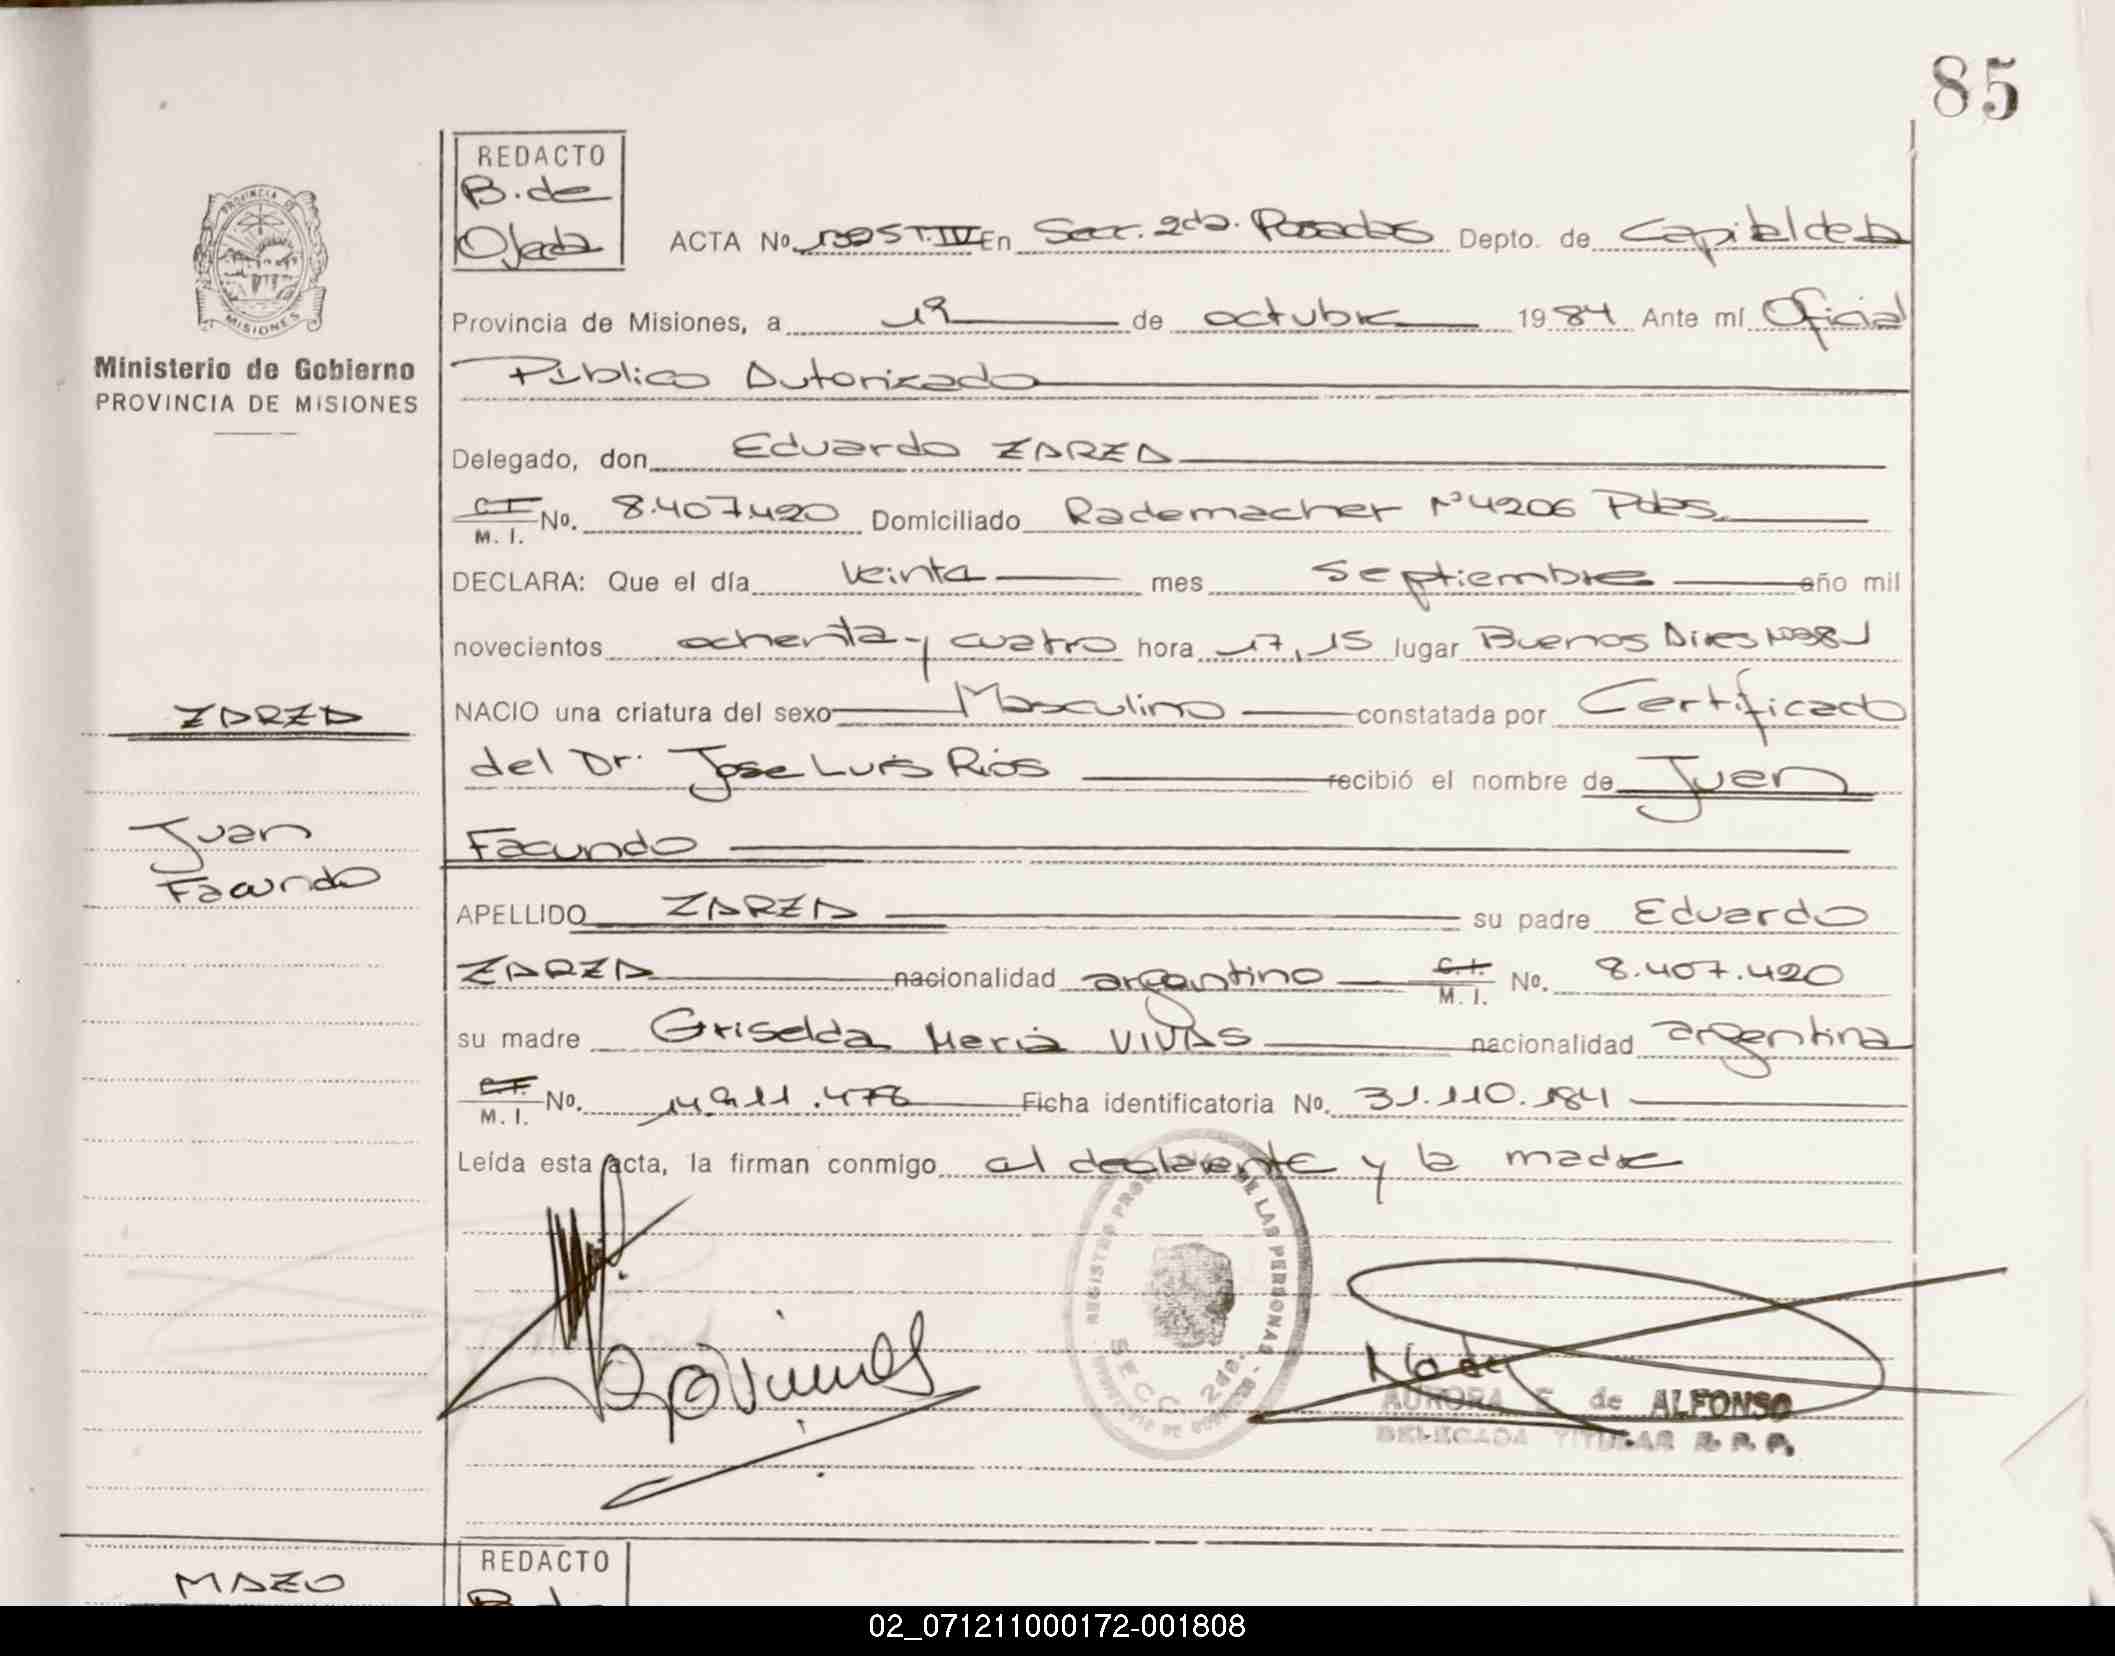 85
REDACTO
B. de
Ojeda
PROVINCIA DE
MISIONES
Ministerio de Gobierno
PROVINCIA DE MISIONES
ACTA No. T.IV En Secc. 2da. Posadas Depto. de Capital de la
Provincia de Misiones, a 19 de octubre 1984 Ante mí Oficial
Público Autorizado
Delegado, don Eduardo ZARZA
C.I. M. I. No. 8.407.420 Domiciliado Rademacher Nº 4206 Pdas.
DECLARA: Que el día veinte mes septiembre año mil
novecientos ochenta y cuatro hora 17,15 lugar Buenos Aires
ZARZA
NACIO una criatura del sexo Masculino constatada por Certificado
del Dr. Jose Luis Rios recibió el nombre de Juan
Juan
Facundo
Facundo
APELLIDO ZARZA su padre Eduardo
ZARZA nacionalidad argentino C.I. M. I. No. 8.407.420
su madre Griselda Maria VIVAS nacionalidad argentina
C.I. M. I. No. Ficha identificatoria No. 31.110.184
Leída esta acta, la firman conmigo el declarante y la madre
REGISTRO DE LAS PERSONAS
SECC. 2da.
AURORA E. de ALFONSO
DELEGADA TITULAR R. P. P.
MAZO
REDACTO
02_071211000172-001808